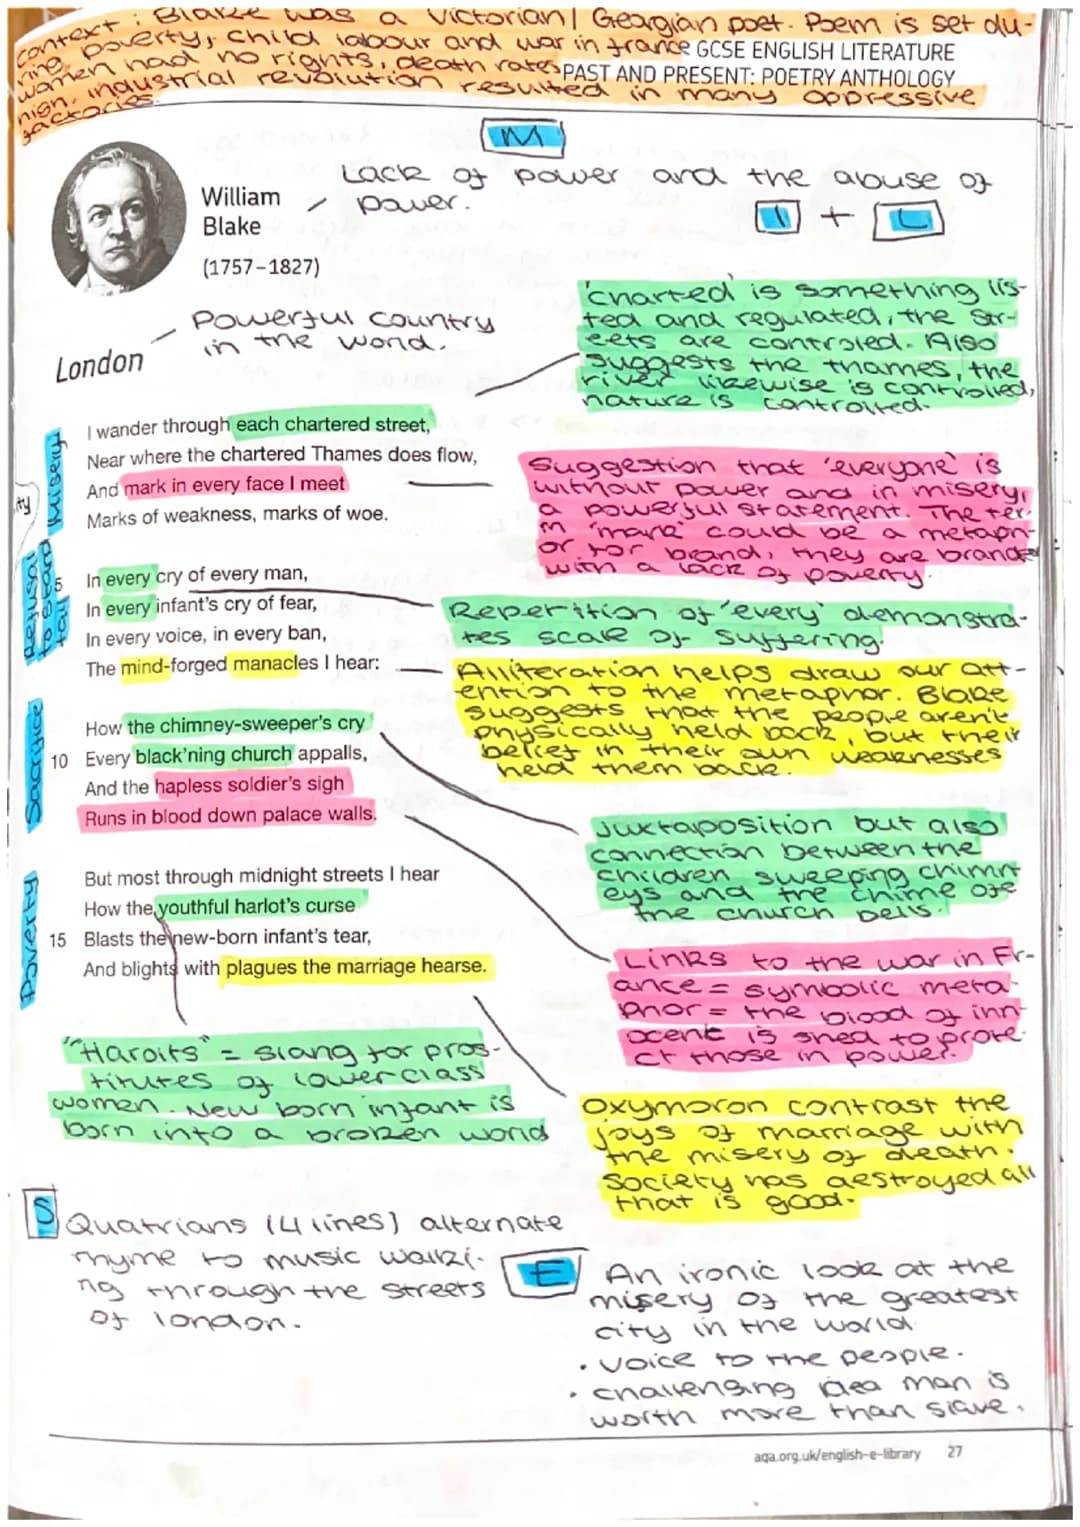 context : Blake was a Victorian/ Georgian poet. Poem is set du-
ring poverty, child labour and war in france GCSE ENGLISH LITERATURE
women had no rights, death rates PAST AND PRESENT: POETRY ANTHOLOGY
high, industrial revolution resulted in many oppressive
factories.
M
Lack of power and the abuse of
power.
William
Blake
(1757–1827)
I + L
Powerful country
in the world.
London
'charted' is something lis-
ted and regulated, the str-
eets are controled. Also
suggests the thames, the
river likewise is controlled,
nature is controlled.
Misery
I wander through each chartered street,
Near where the chartered Thames does flow,
And mark in every face I meet
Marks of weakness, marks of woe.
ty
Suggestion that 'everyone' is
without power and in misery,
a powerful statement. The ter-
m 'mark' could be a metaph-
or for brand, they are brande
with a lack of poverty.
Refusal
to stand
tall
5 In every cry of every man,
In every infant's cry of fear,
In every voice, in every ban,
The mind-forged manacles I hear:
Repetition of 'every' demonstra-
tes scale of suffering.
Alliteration helps draw our att-
ention to the metaphor. Blake
suggests that the people aren't
physically held back, but their
belief in their own weaknesses
held them back.
Sacrifice
How the chimney-sweeper's cry
10 Every black'ning church appalls,
And the hapless soldier's sigh
Runs in blood down palace walls.
Juxtaposition but also
connection between the
children sweeping chimn
eys and the chime ofe
the church bells.
Poverty
But most through midnight streets I hear
How the youthful harlot's curse
15 Blasts the new-born infant's tear,
And blights with plagues the marriage hearse.
Links to the war in Fr-
ance = symbolic meta-
phor = the blood of inn-
ocent is shed to prote
ct those in power.
"Harolts" = slang for pros-
titutes of lower class
women. New born infant is
born into a broken world
Oxymoron contrast the
joys of marriage with
the misery of death.
Society has destroyed all
that is good.
S
Quatrians (4 lines) alternate
rhyme to music walki-
ng through the streets
of london.
E
An ironic look at the
misery of the greatest
city in the world
• voice to the people.
• challenging idea man is
worth more than slave.
aqa.org.uk/english-e-library 27